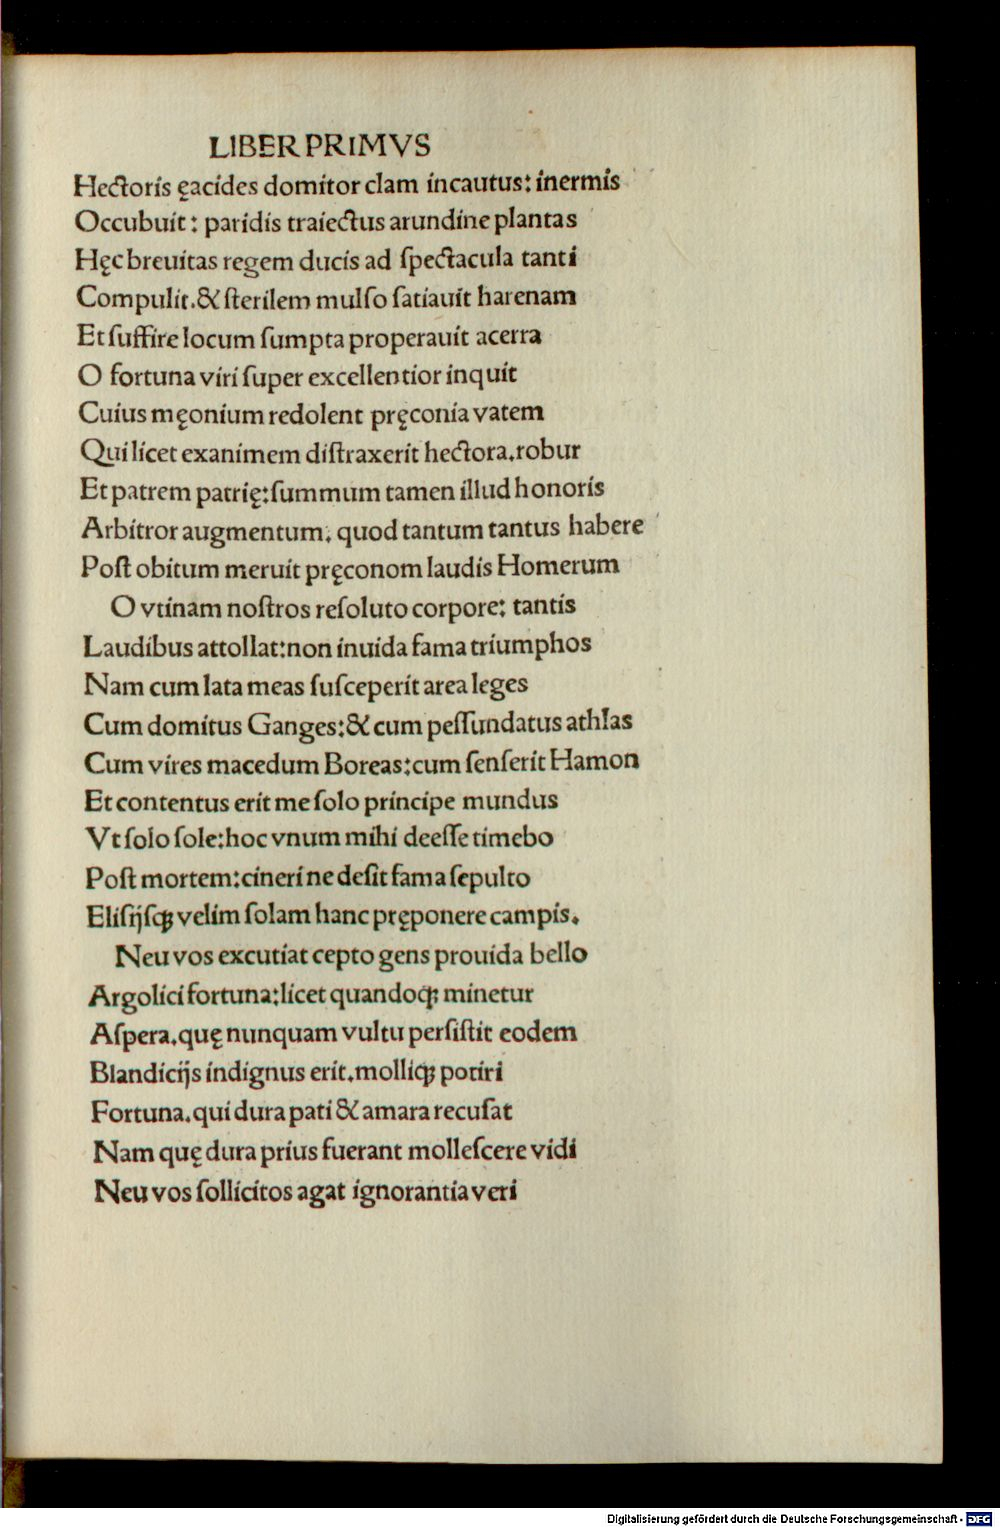 LIBER PRIMVS
Hectoris ęacides domitor clam incautus: inermis
Occubuit: paridis traiectus arundine plantas
Hęc breuitas regem ducis ad ſpectacula tanti
Compulit. & ſterilem mulſo ſatiauit harenam
Et ſuffire locum ſumpta properauit acerra
O fortuna viri ſuper excellentior inquit
Cuius męonium redolent pręconia vatem
Qui licet exanimem diſtraxerit hectora. robur
Et patrem patrię: ſummum tamen illud honoris
Arbitror augmentum. quod tantum tantus habere
Poſt obitum meruit pręconom laudis Homerum
O vtinam noſtros reſoluto corpore: tantis
Laudibus attollat: non inuida fama triumphos
Nam cum lata meas ſuſceperit area leges
Cum domitus Ganges: & cum peſſundatus athlas
Cum vires macedum Boreas: cum ſenſerit Hamon
Et contentus erit me ſolo principe mundus
Vt ſolo ſole: hoc vnum mihi deeſſe timebo
Poſt mortem: cineri ne deſit fama ſepulto
Eliſijſqꝫ velim ſolam hanc pręponere campis.
Neu vos excutiat cepto gens prouida bello
Argolici fortuna: licet quandoqꝫ minetur
Aſpera. quę nunquam vultu perſiſtit eodem
Blandicijs indignus erit. molliqꝫ potiri
Fortuna. qui dura pati & amara recuſat
Nam quę dura prius fuerant molleſcere vidi
Neu vos ſollicitos agat ignorantia veri
Digitalisierung gefördert durch die Deutsche Forschungsgemeinschaft - DFG